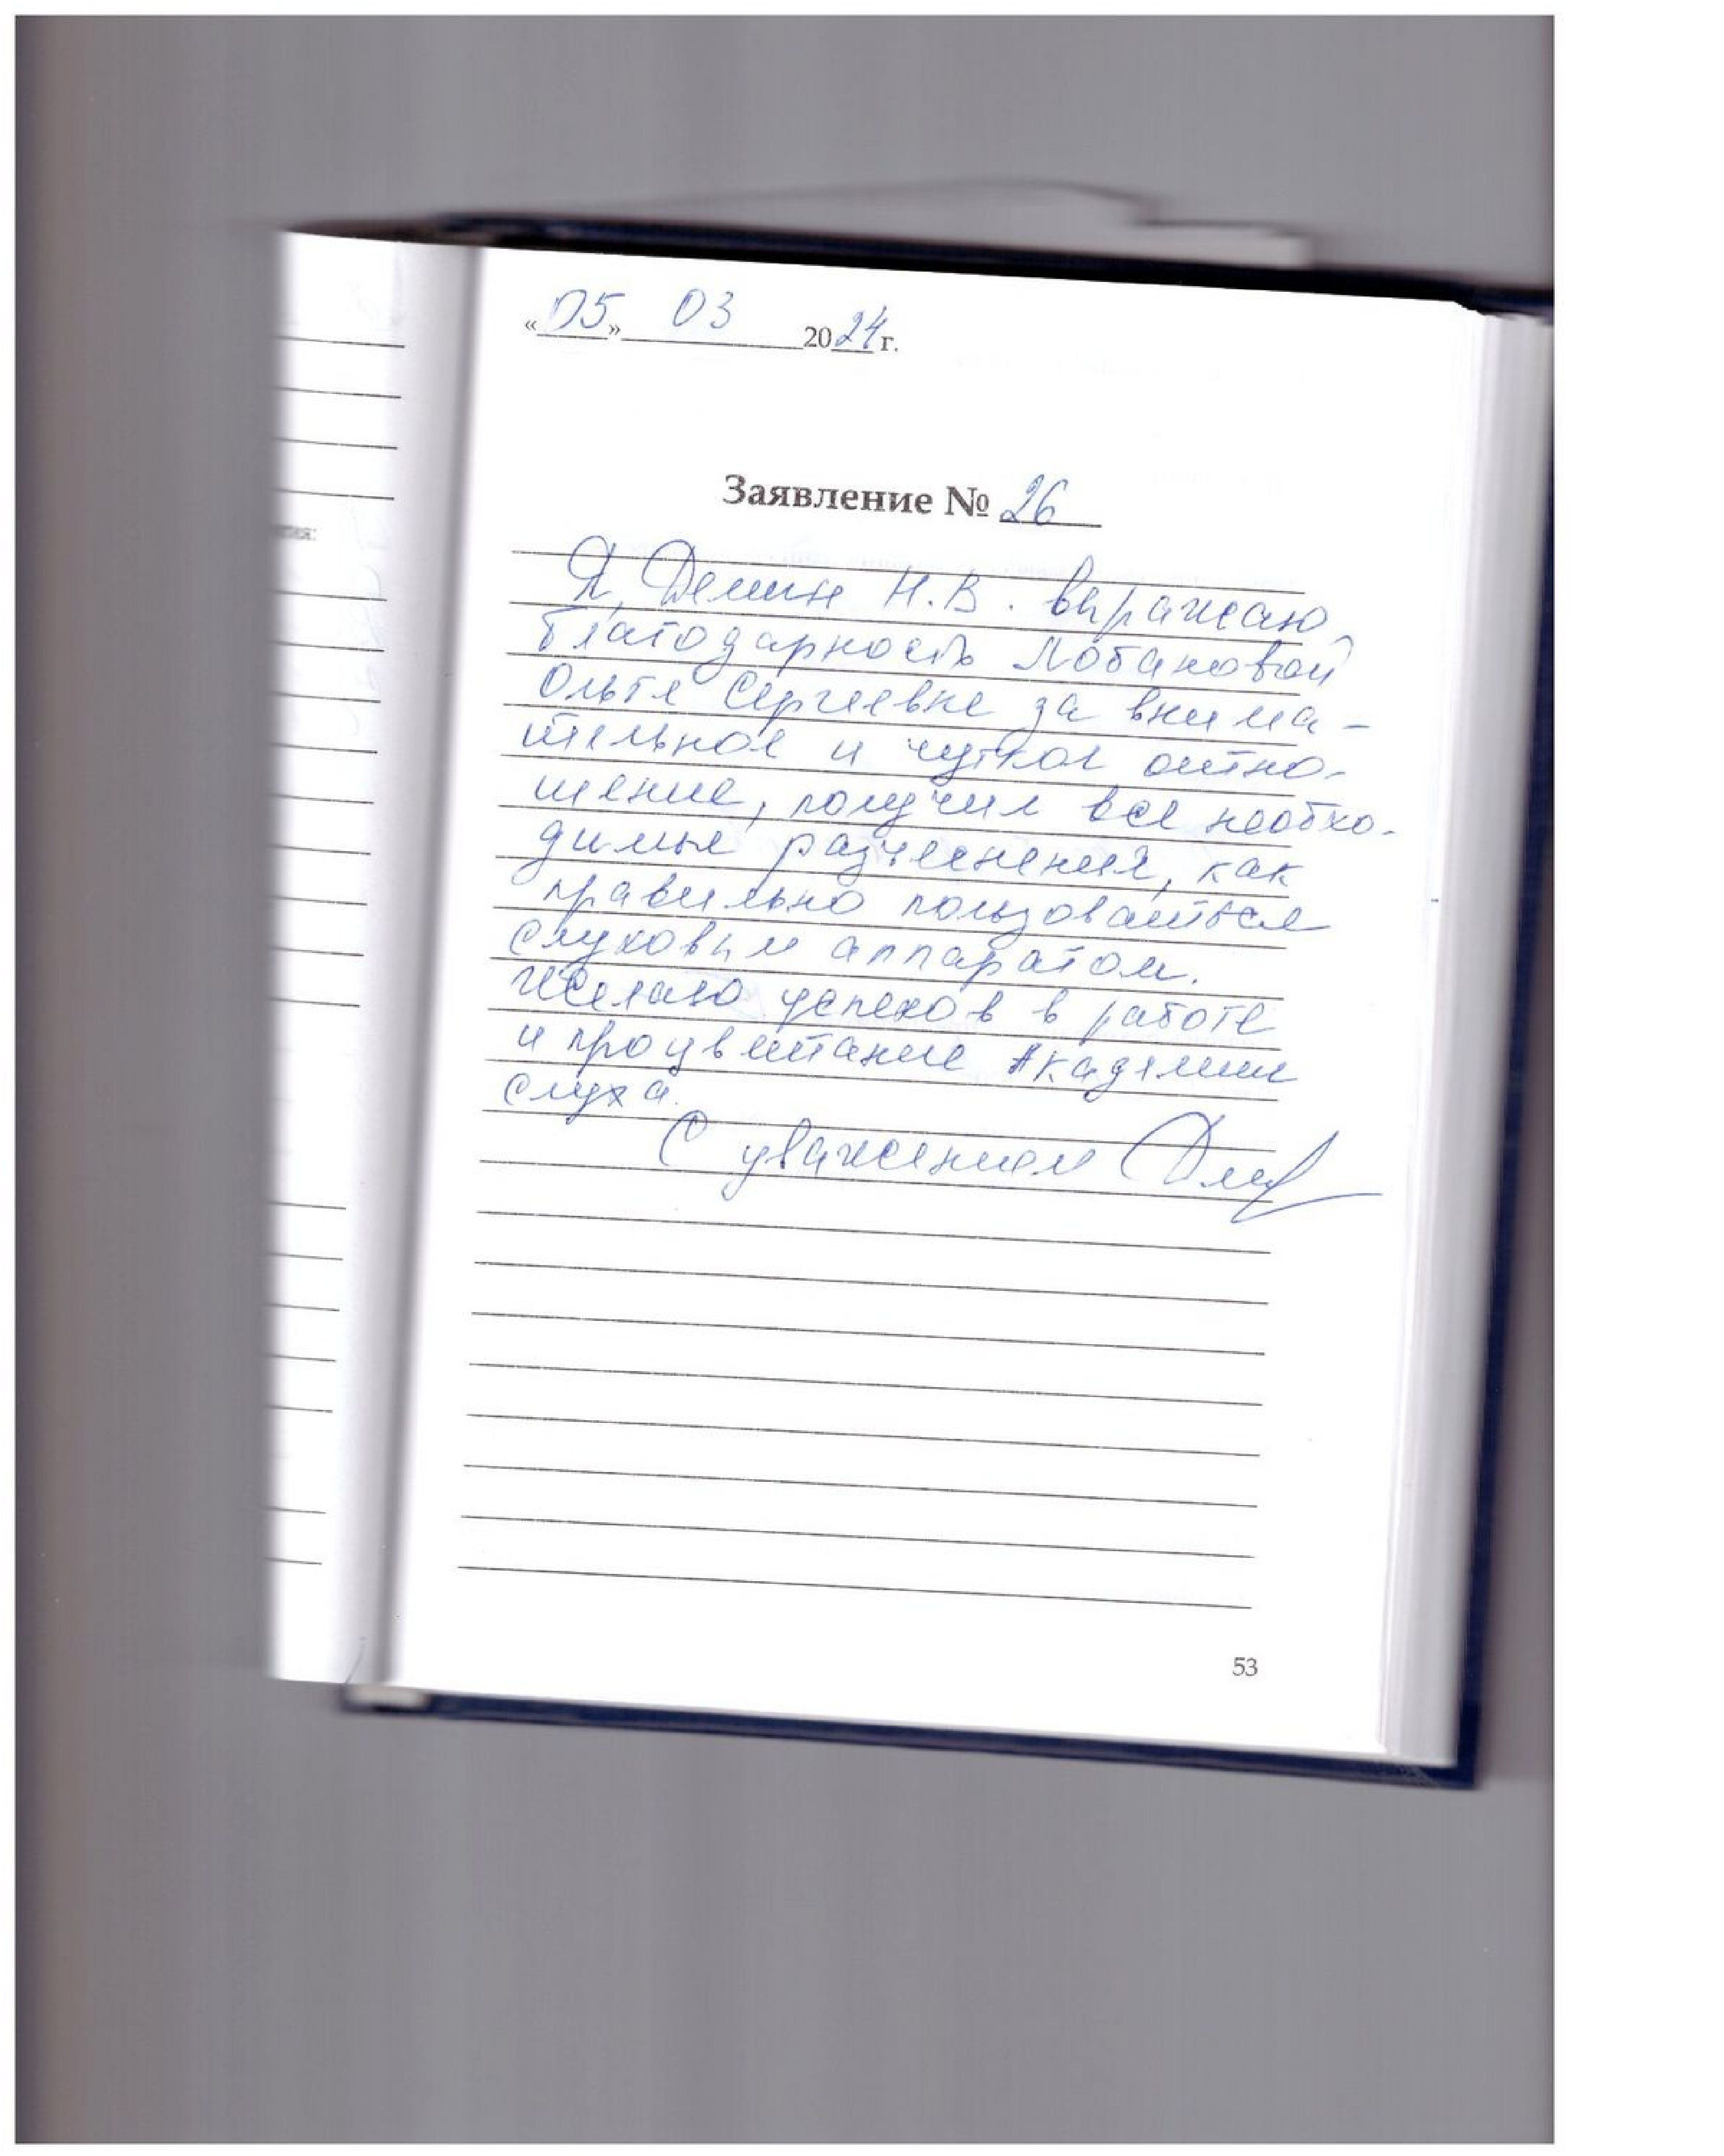 «05» 03 2024 г.
Заявление № 26
Я, Демин Н.В. выражаю
благодарность Лобановой
Ольге Сергеевне за внима-
тельное и чуткое отно-
шение, получил все необхо-
димые разъяснения, как
правильно пользоваться
слуховым аппаратом.
Желаю успехов в работе
и процветание Академии
слуха.
С уважением
53